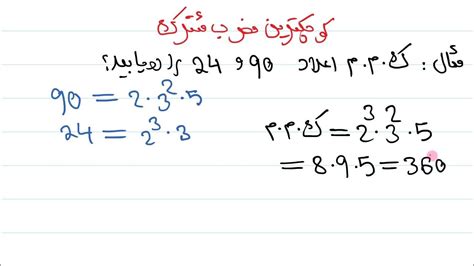 کوچکترین مضرب مشترک
مثال: ک.م.م اعداد 90 و 24 را دریابید؟
90 = 2·3²·5
24 = 2³·3
ک.م.م = 2³·3²·5
= 8·9·5 = 360